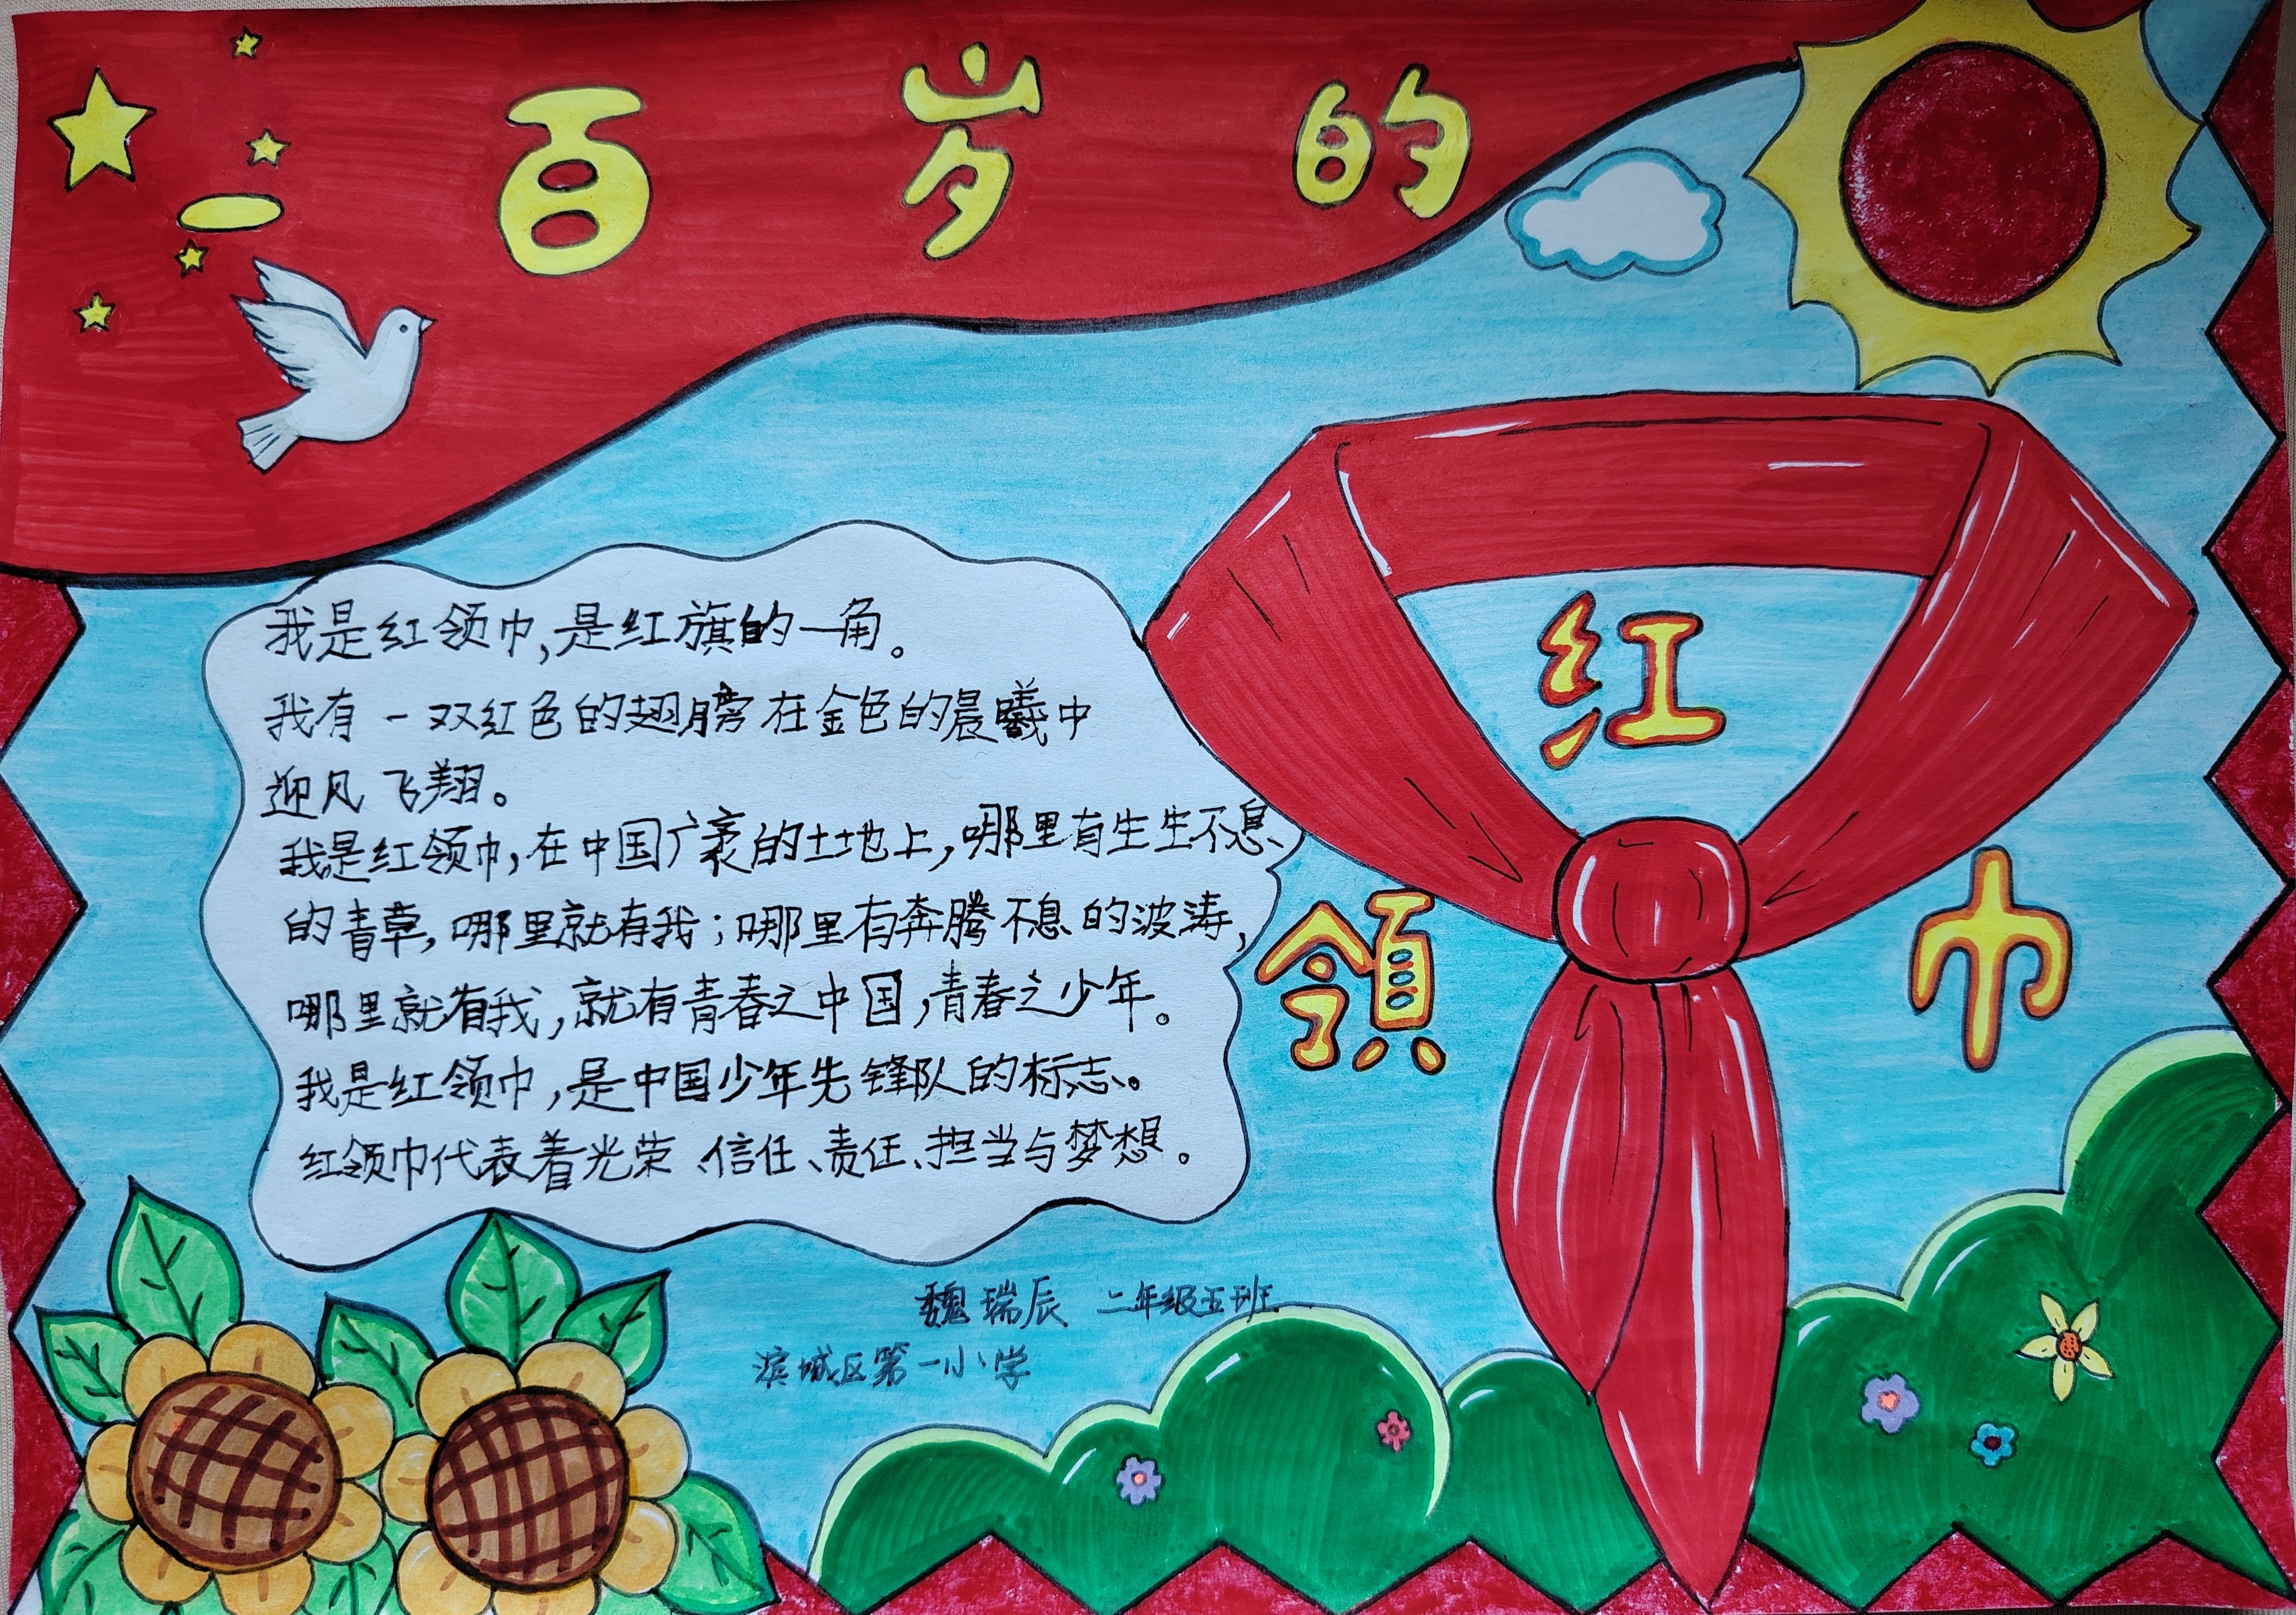 一百岁的
红
领巾
我是红领巾,是红旗的一角。
我有一双红色的翅膀在金色的晨曦中
迎风飞翔。
我是红领巾,在中国广袤的土地上,哪里有生生不息
的青草,哪里就有我;哪里有奔腾不息的波涛,
哪里就有我,就有青春之中国,青春之少年。
我是红领巾,是中国少年先锋队的标志。
红领巾代表着光荣、信任、责任、担当与梦想。
魏瑞辰 二年级五班
滨城区第一小学